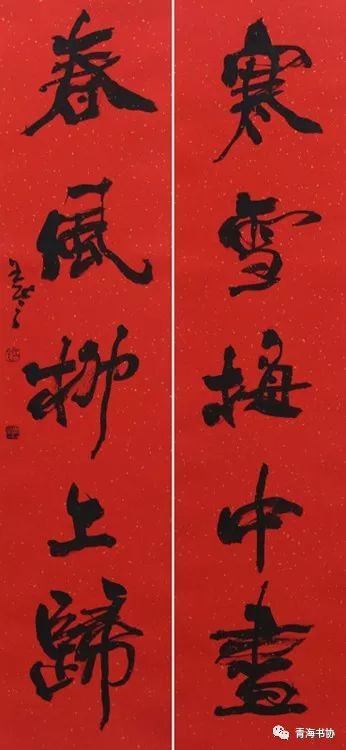 寒雪梅中盡
春風柳上歸
青海书协